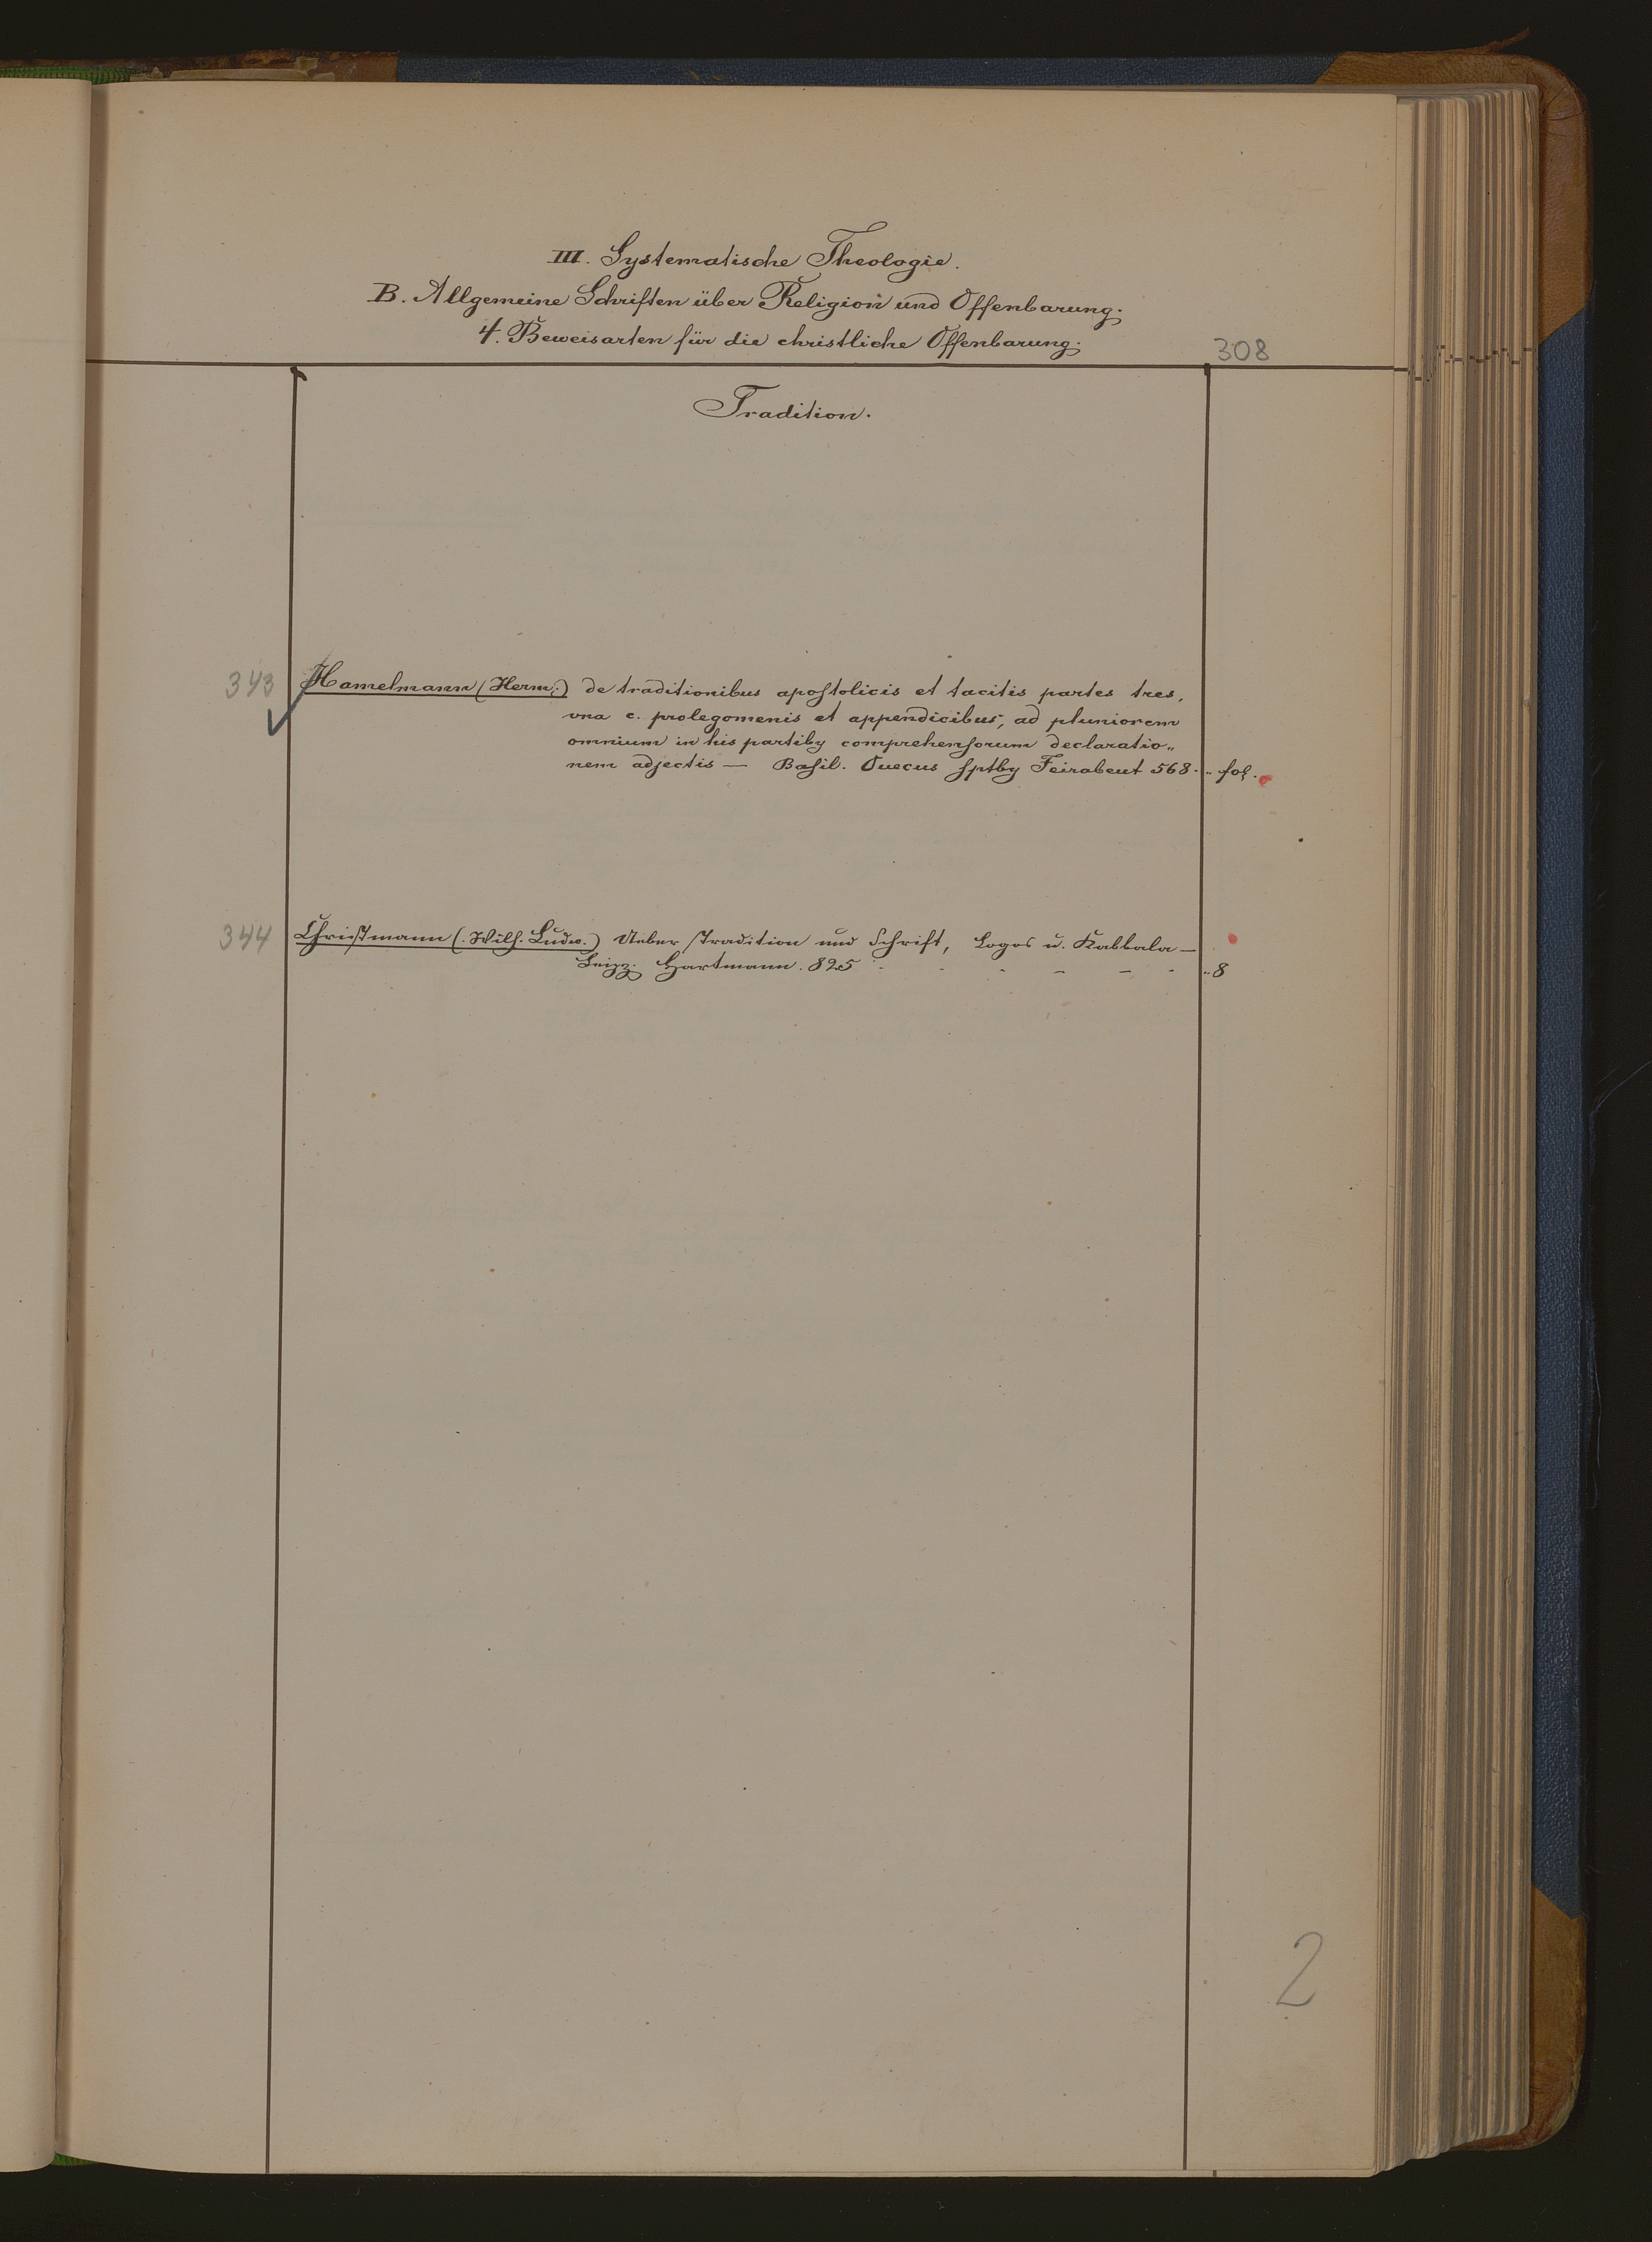 III. Systematische Theologie.
B. Allgemeine Schriften über Religion und Offenbarung.
4. Beweisarten für die christliche Offenbarung.
308
Tradition.
343 Hamelmann (Herm.) de traditionibus apostolicis et tacitis partes tres,
vna c. prolegomenis et appendicibus, ad pluniorem
omnium in his partiby comprehensorum declaratio„
nem adjectis — Basil. Ouecus sptby Feirabent 568. fol.
344 Christmann (Wilh. Ludw.) Ueber Tradition und Schrift, Logos u. Kabbala —
Leipz. Hartmann. 825 - - - - - 8
2